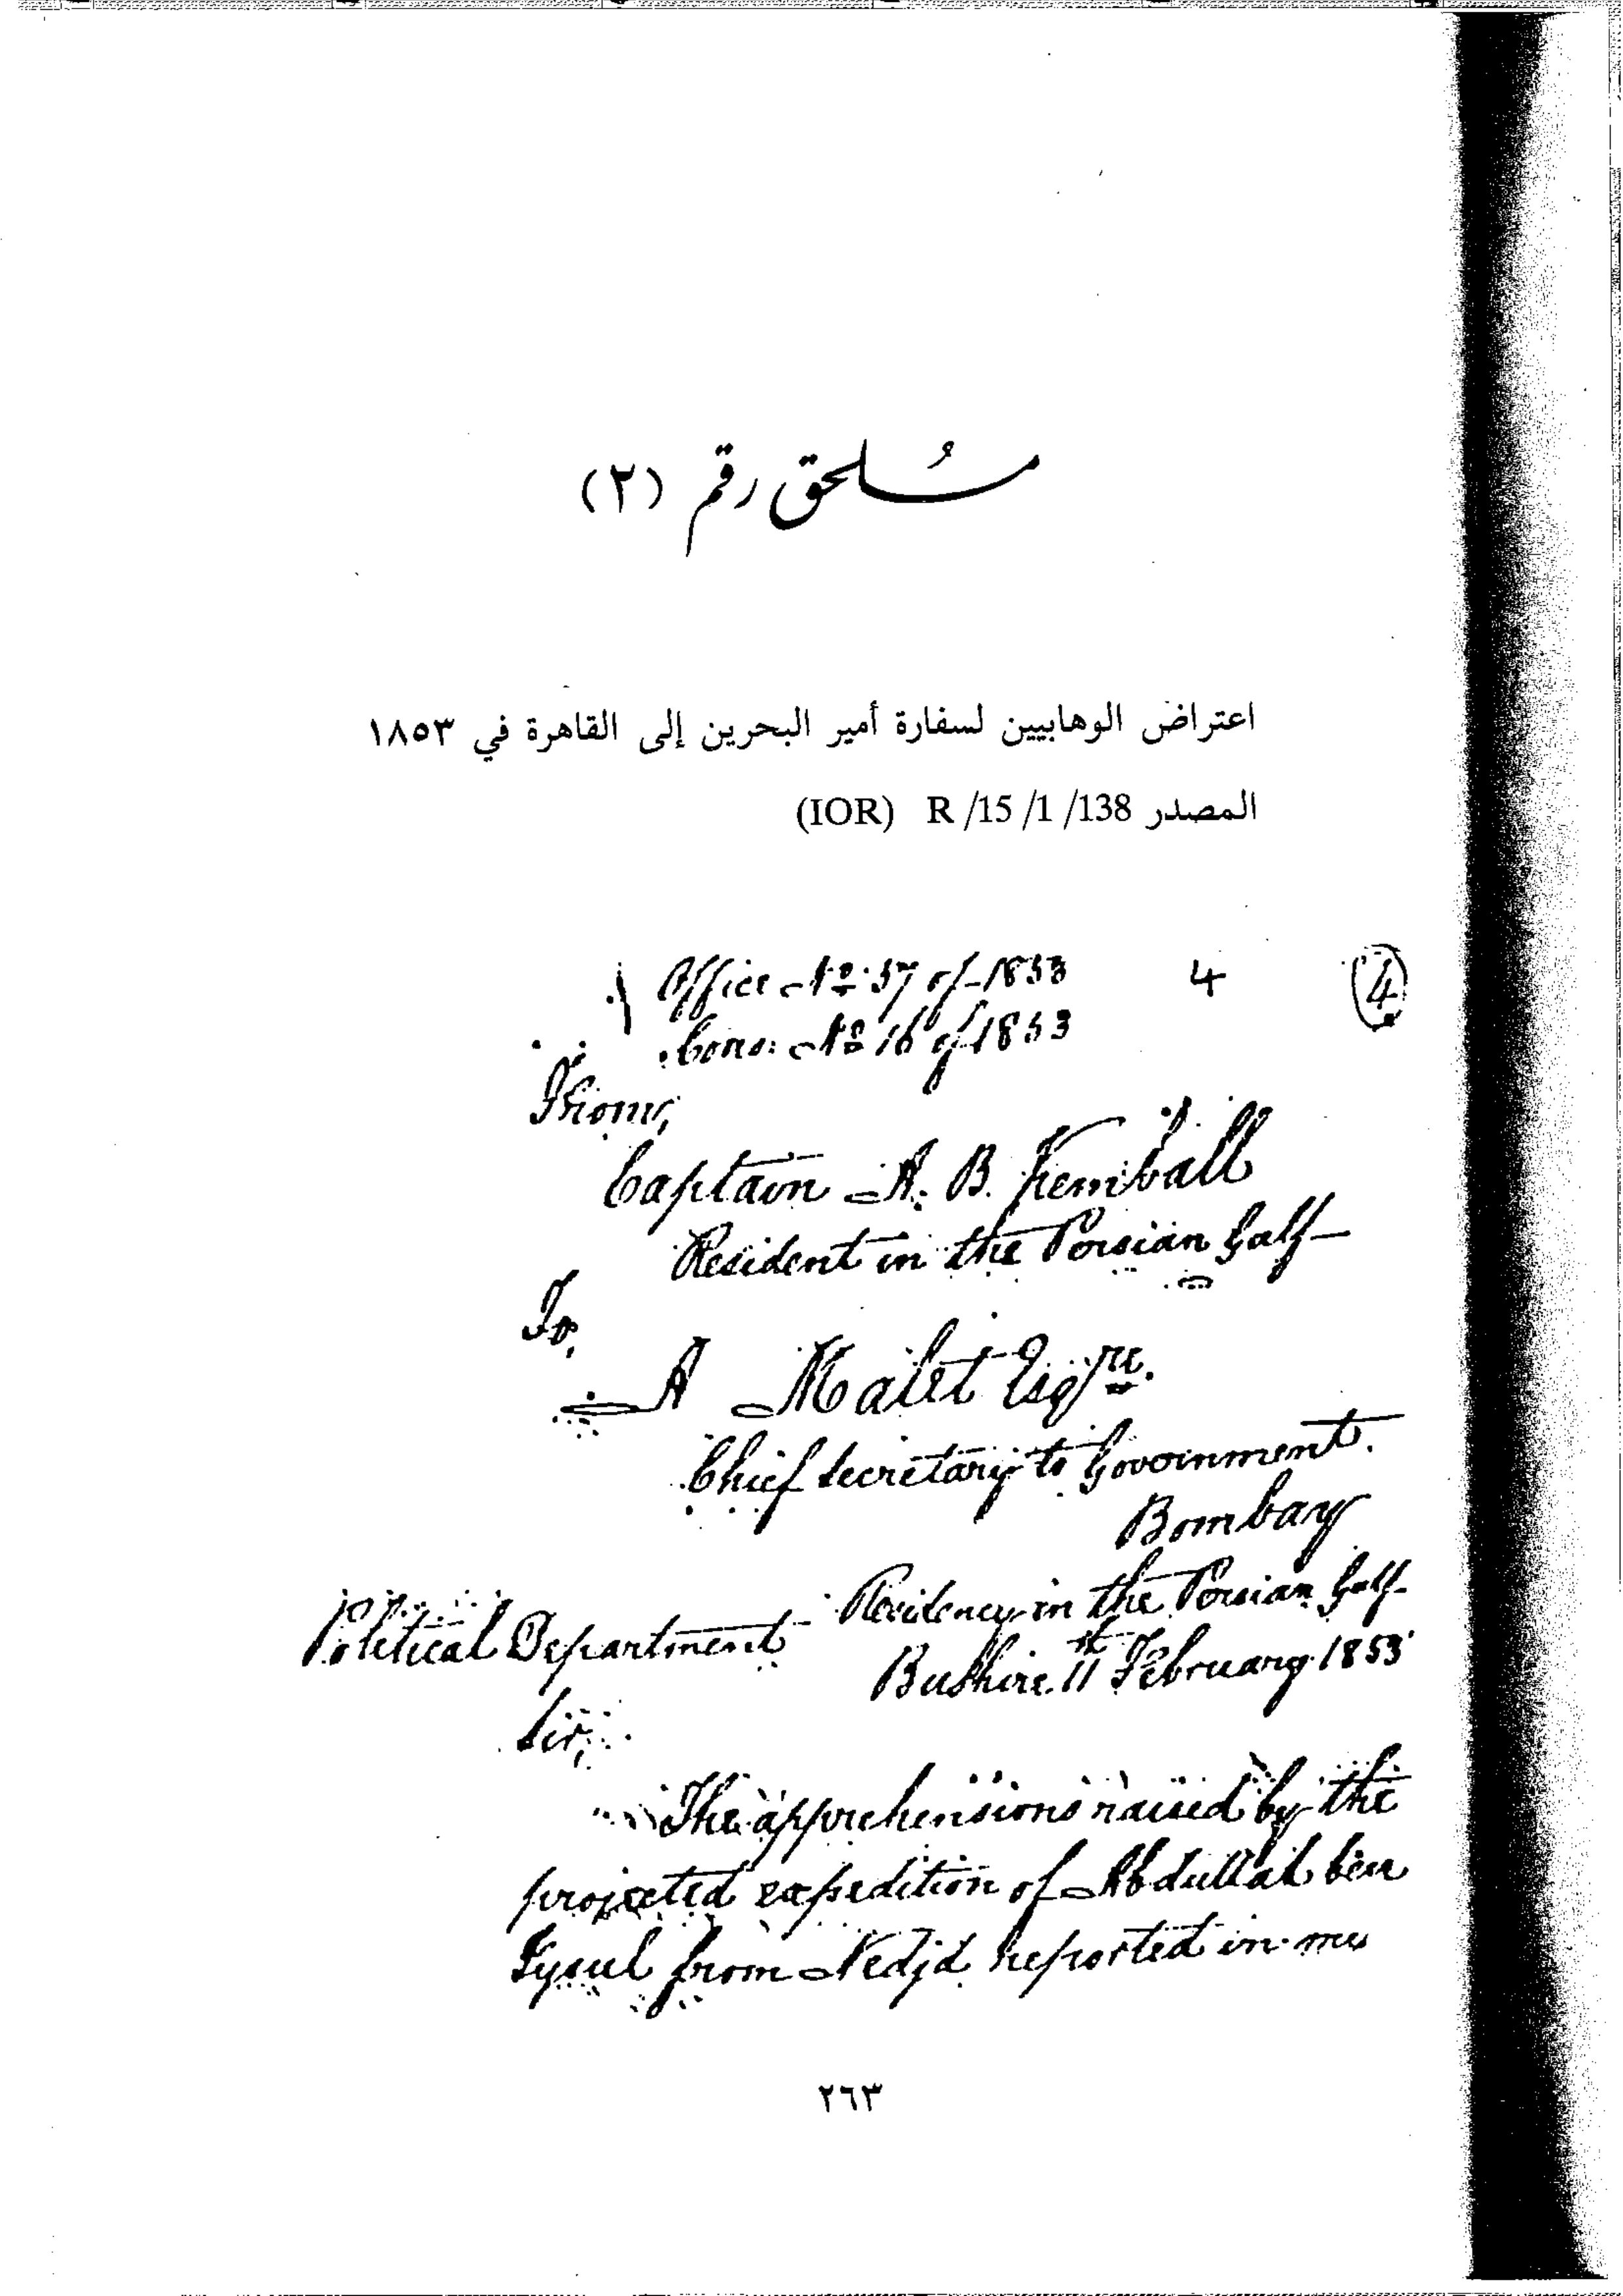 مُلحق رقم (٢)
اعتراض الوهابيين لسفارة أمير البحرين إلى القاهرة في ١٨٥٣
المصدر R /15 /1 /138 (IOR)
Office No. 37 of 1853 4 4
No 16 of 1853
From,
Captain A. B. Kemball
Resident in the Persian Gulf
To,
A Malet Esqre.
Chief Secretary to Government.
Bombay
Residency in the Persian Gulf
Political Department Bushire 11th February 1853
Sir,
The apprehensions raised by the
projected expedition of Abdullah bin
Fysul from Nedjd reported in my
٢٦٣